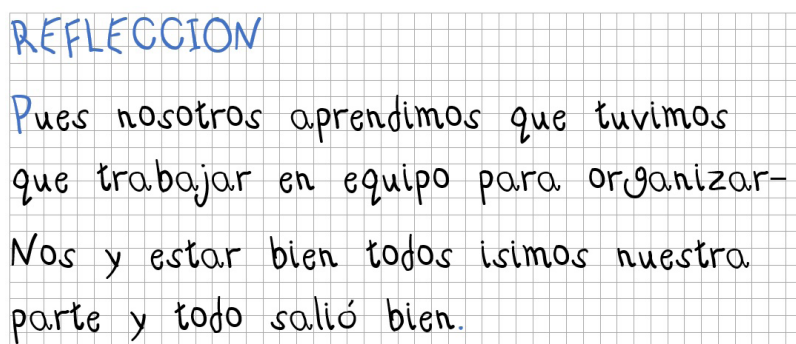 REFLECCION
Pues nosotros aprendimos que tuvimos
que trabajar en equipo para organizar-
Nos y estar bien todos isimos nuestra
parte y todo salió bien.